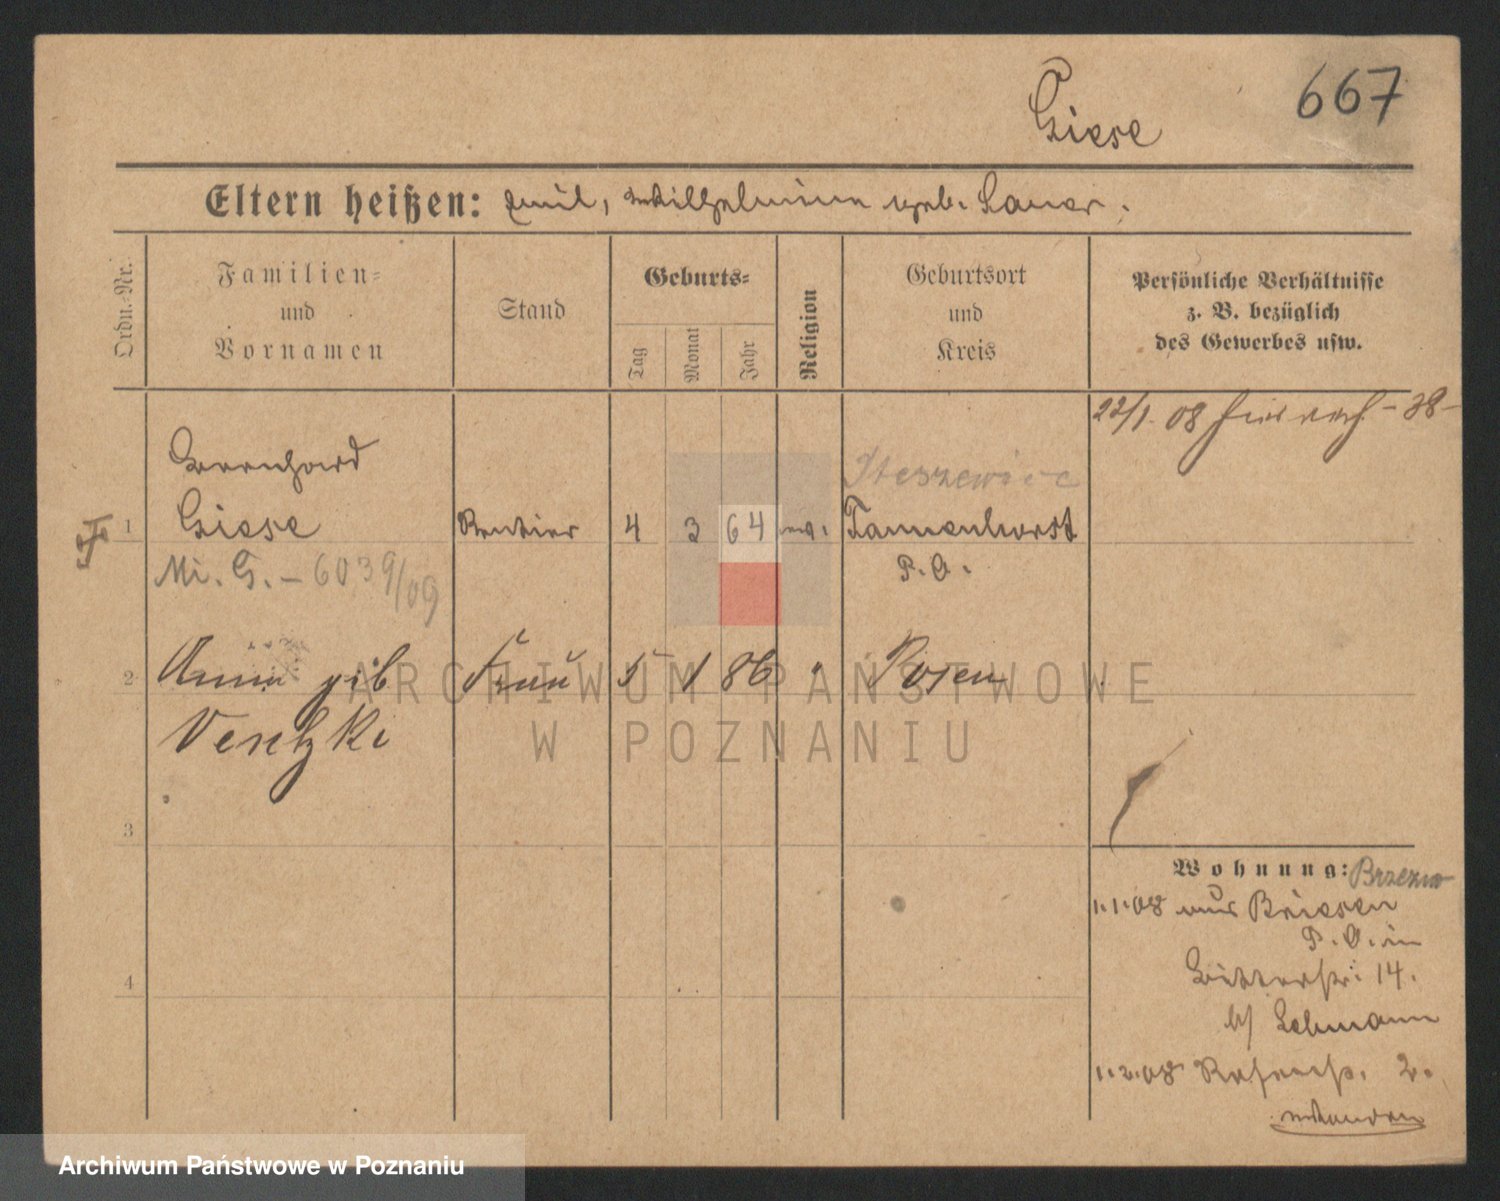 667
Giese
Eltern heißen: Emil, Wilhelmine geb. Lauer.
Ordn.-Nr.
Familien-
und
Vornamen
Stand
Geburts-
Tag
Monat
Jahr
Religion
Geburtsort
und
Kreis
Persönliche Verhältnisse
z. B. bezüglich
des Gewerbes usw.
22/1. 08
Bernhard
1 Giese Rentier 4 3 64 ev. Tannenhorst
P. O.
Mi. G. - 6039/09
2 Anna geb Frau 5 1 86 " Posen
Ventzki
3
4
Wohnung:
1.1.08 aus Briesen
P. O. in
Ritterstr. 14.
b/ Lehmann
1.2.08 2.
ARCHIWUM PAŃSTWOWE
W POZNANIU
Archiwum Państwowe w Poznaniu